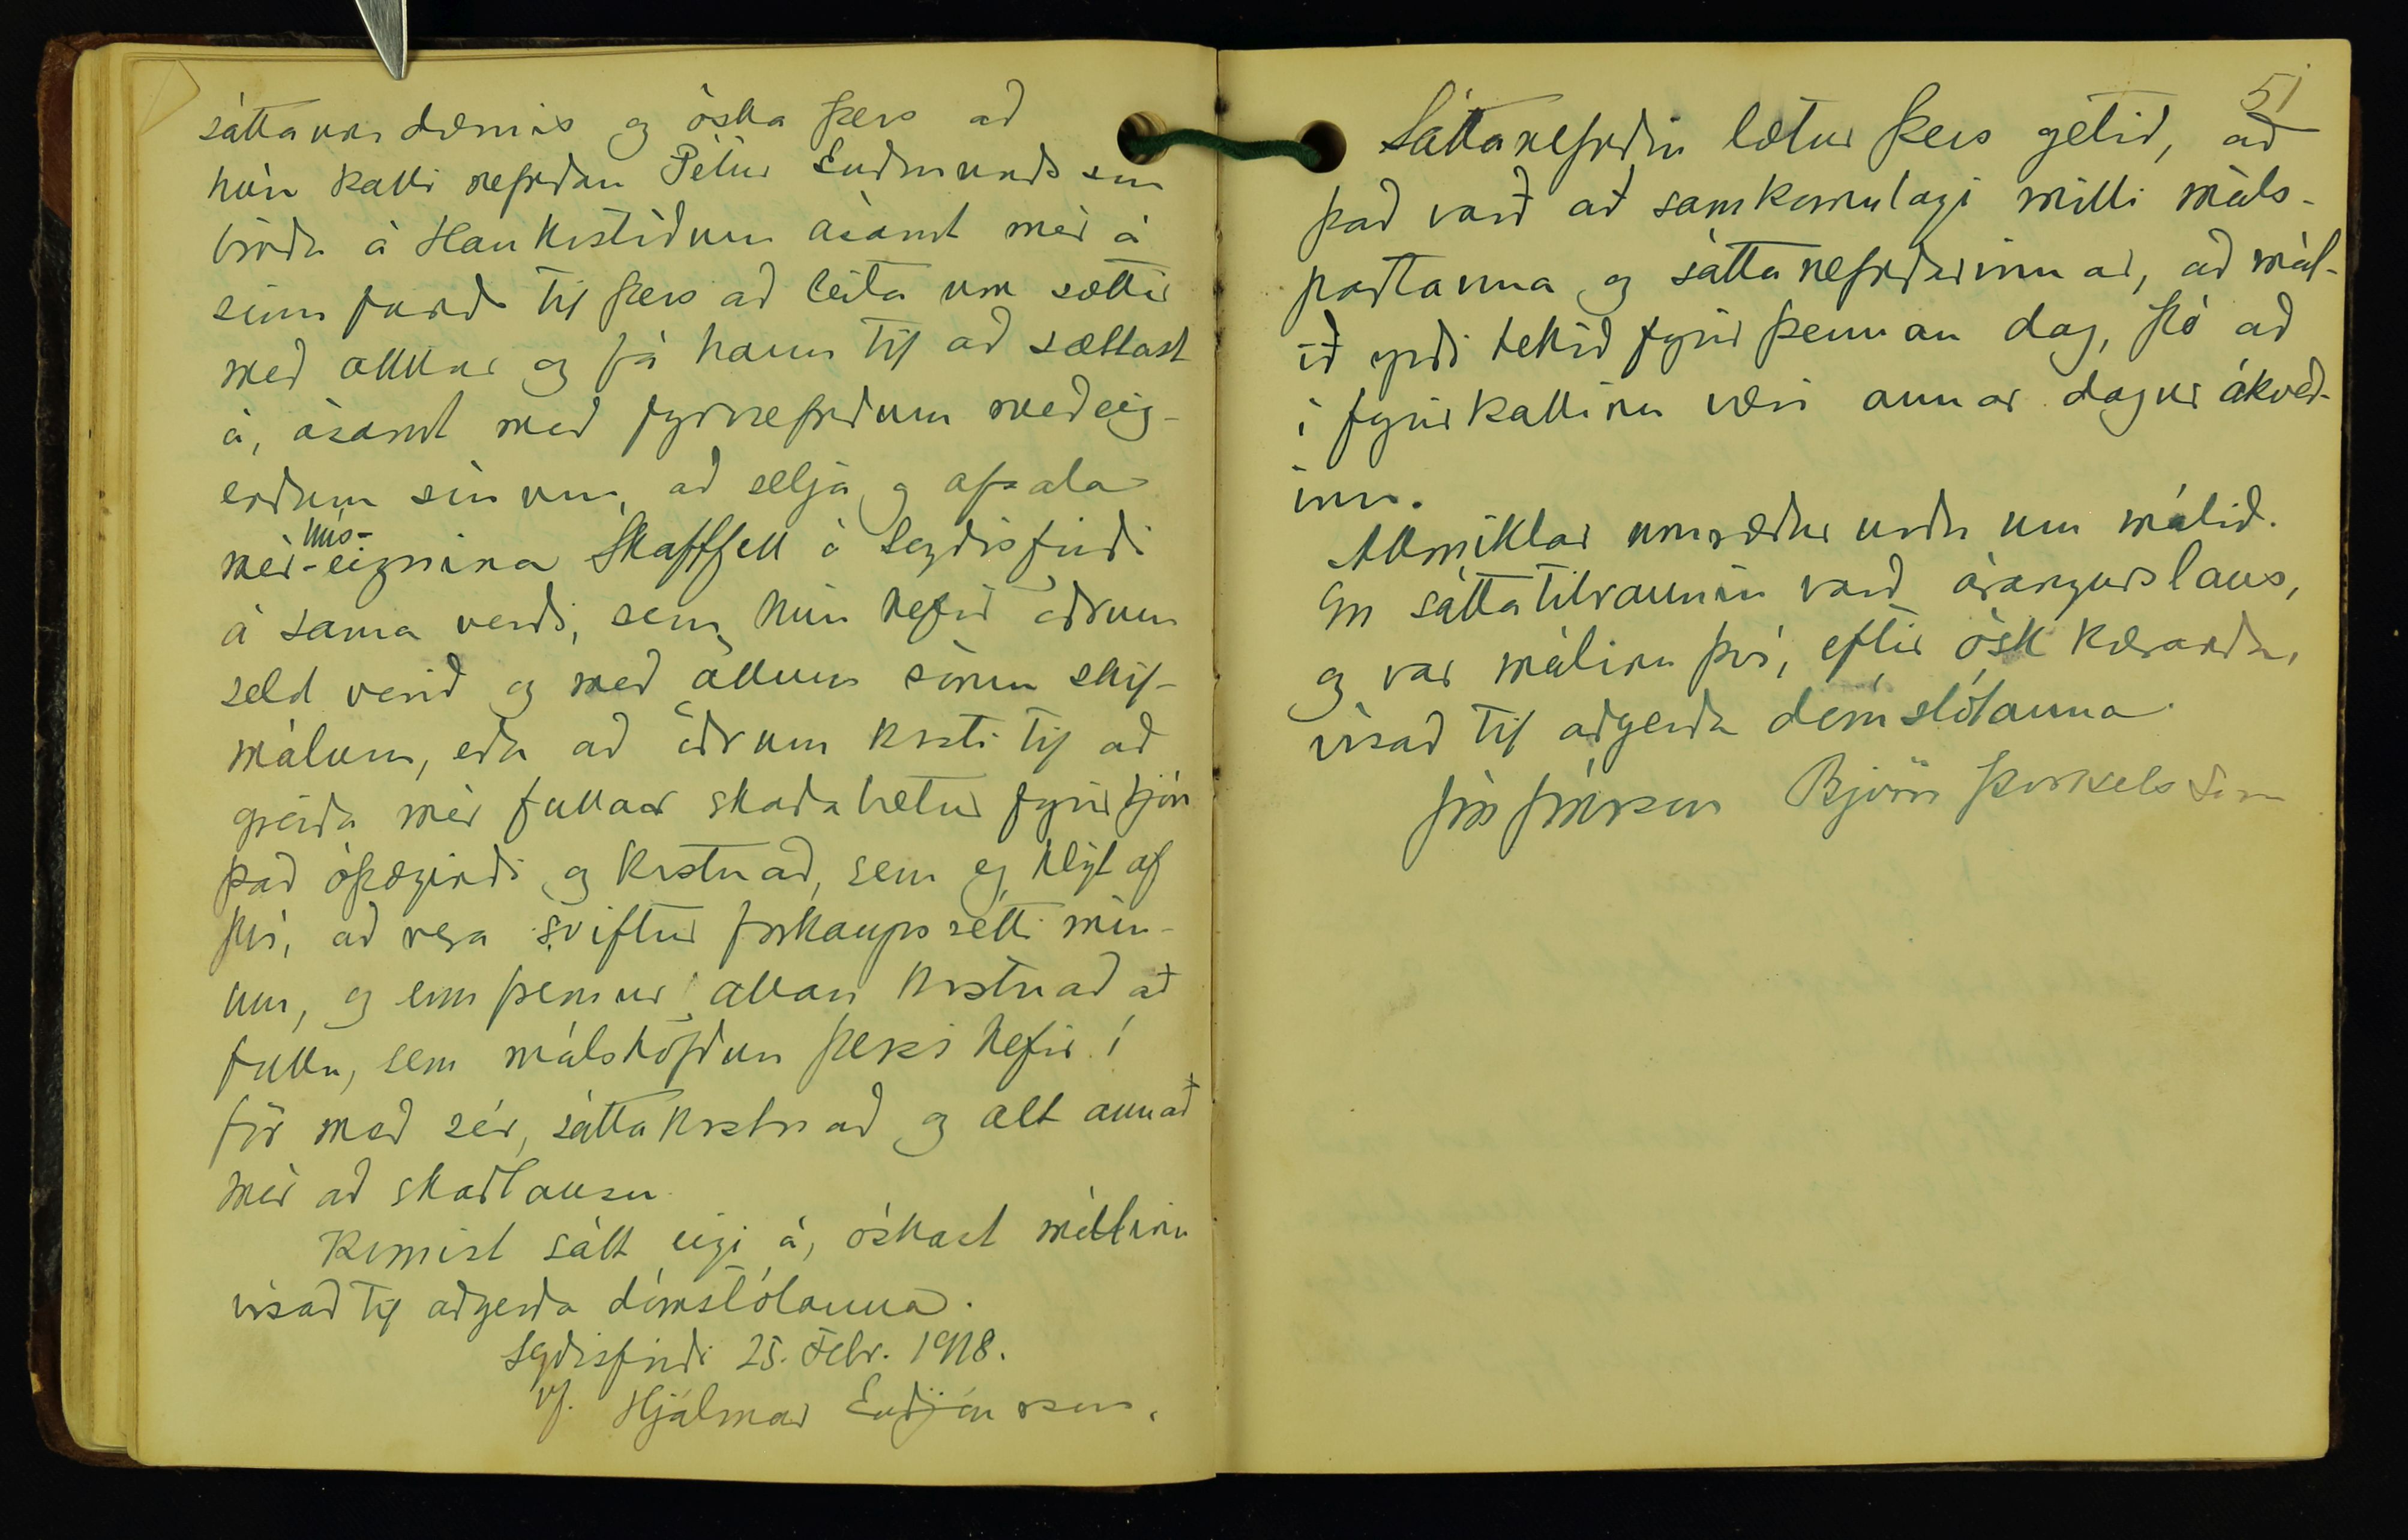 sáttaumdæmis og óska þess að
hún kalli nefndan Pétur Guðmundsson
bónda á Haukstöðum ásamt mér á
sinn fund til þess að leita um sættir
með okkur og fá hann til að sættast
á, ásamt með fyrnefndum meðeig-
endum sínum, að selja og afsala
mér hús-eignina Skaftfell á Seyðisfirði
á sama verði, sem hún hefir öðrum
seld verið og með öllum sömu skil-
málum, eða að öðrum kosti til að
greiða mér fullar skaðabætur fyrir tjón
það óþægindi og kostnað, sem eg hlýt af
því, að vera sviftur forkaupsrétti mín-
um, og enn fremur allan kostnað að
fullu, sem málshöfðun þessi hefir í
för með sér, sáttakostnað og alt annað
mér að skaðlausu.
Komist sátt eigi á, óskast málinu
vísað til aðgerða dómstólanna.
Seyðisfirði 25. Febr. 1918.
Hjálmar Guðjónsson.
51
Sáttanefndin lætur þess getið, að
það varð að samkomulagi milli máls-
partanna og sáttanefndarinnar, að mál-
ið yrði tekið fyrir þennan dag, þó að
í fyrirkallinu væri annar dagur ákveð-
inn.
Allmiklar umræður urðu um málið.
En sáttatilraunin varð árangurslaus,
og var málinu því, eftir ósk kæranda,
vísað til aðgerða dómstólanna.
Jón Jónsson Björn Þorkelsson